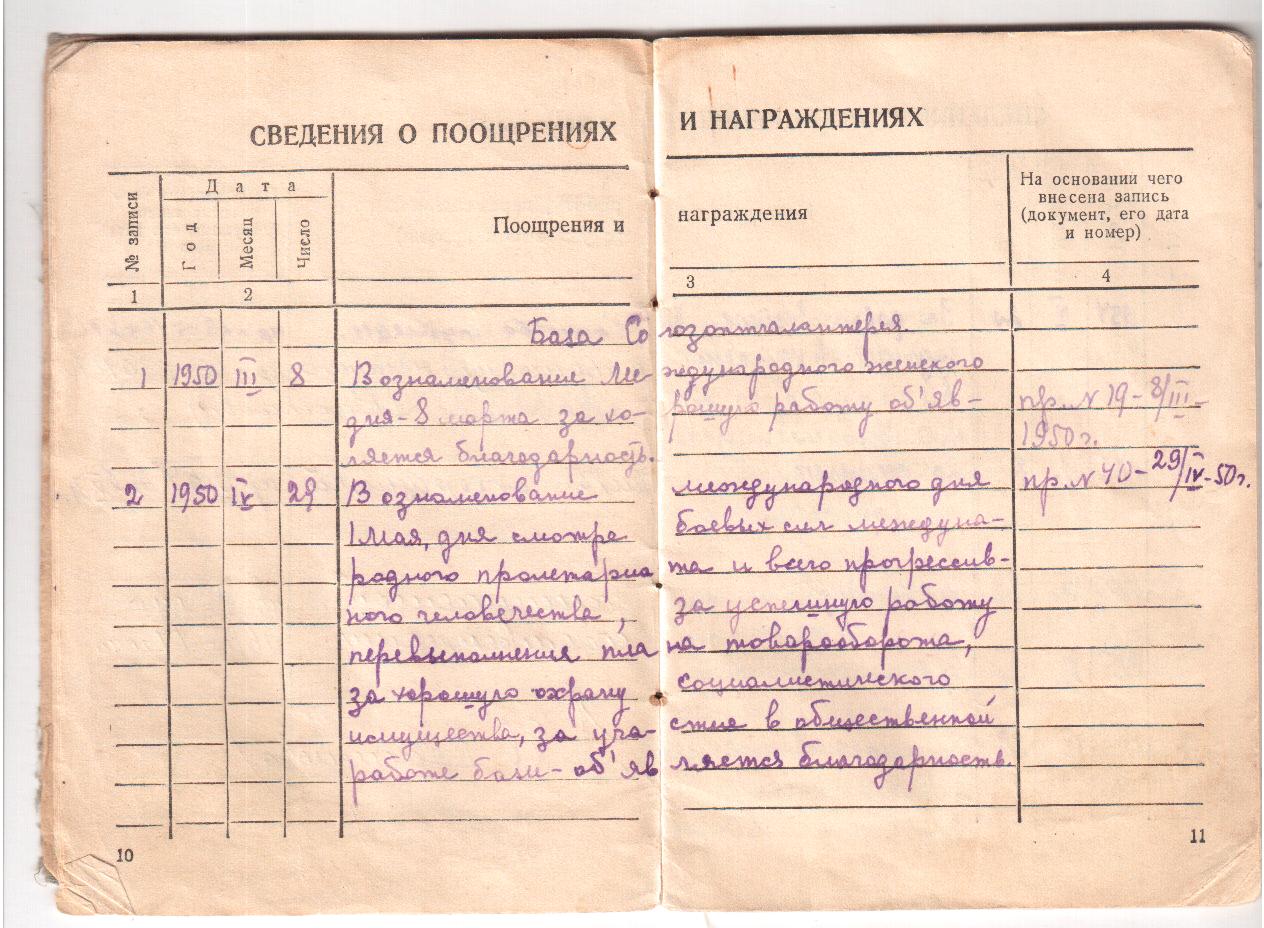 СВЕДЕНИЯ О ПООЩРЕНИЯХ И НАГРАЖДЕНИЯХ
№ записи
Дата
Год
Месяц
Число
Поощрения и награждения
На основании чего
внесена запись
(документ, его дата
и номер)
1
2
3
4
База Союзоптгалантерея.
1 1950 III 8 В ознаменование Международного женского
дня - 8 марта за хорошую работу об'яв- пр. N 19 - 8/III -
ляется благодарность. 1950 г.
2 1950 IV 29 В ознаменование международного дня пр. N 40 - 29/IV - 50 г.
1 Мая, дня смотра боевых сил междуна-
родного пролетариата и всего прогрессив-
ного человечества, за успешную работу
перевыполнения плана товарооборота,
за хорошую охрану социалистического
имущества, за участие в общественной
работе базы - об'является благодарность.
10
11